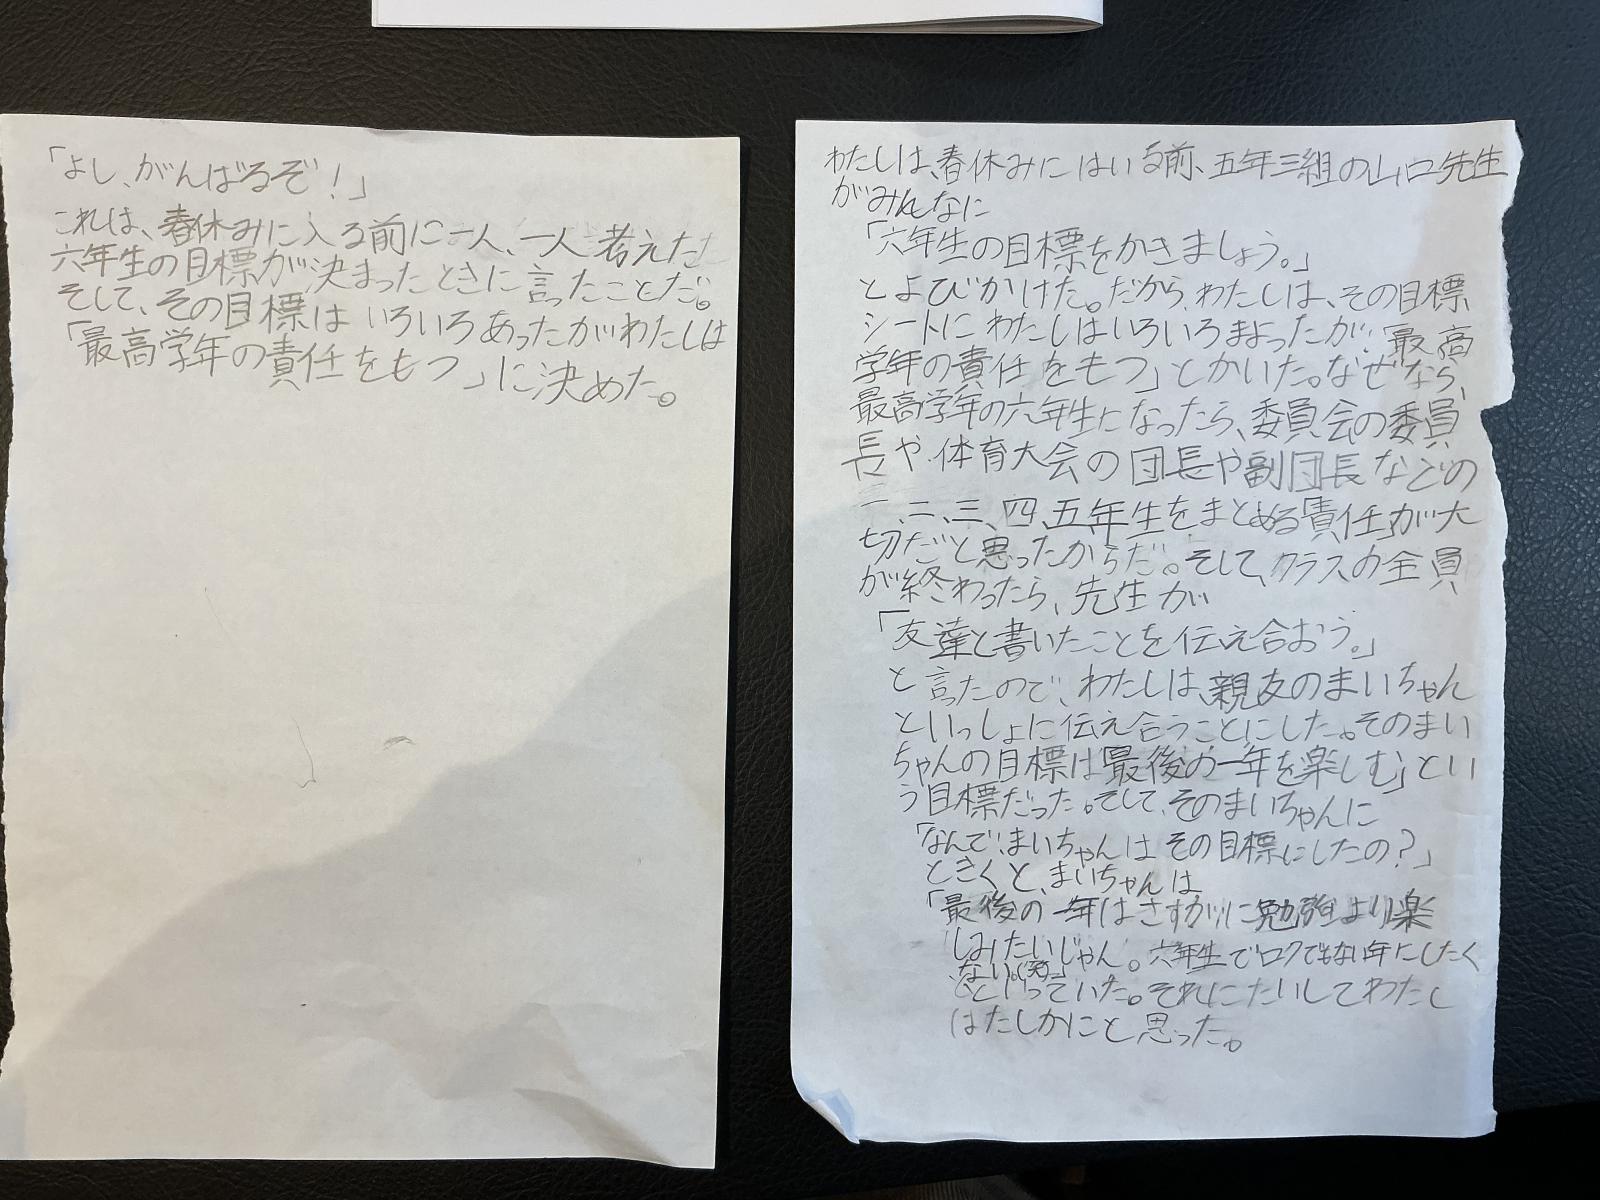 「よし、がんばるぞ!」
これは、春休みに入る前に一人、一人考えた
六年生の目標が決まったときに言ったことだ。
そして、その目標はいろいろあったがわたしは
「最高学年の責任をもつ」に決めた。
わたしは、春休みにはいる前、五年三組の山口先生
がみんなに
「六年生の目標をかきましょう。」
とよびかけた。だから、わたしは、その目標
シートにわたしはいろいろまよったが、「最高
学年の責任をもつ」とかいた。なぜなら、
最高学年の六年生になったら、委員会の委員
長や、体育大会の団長や副団長などの
一、二、三、四、五年生をまとめる責任が大
切だと思ったからだ。そして、クラスの全員
が終わったら、先生が
「友達と書いたことを伝え合おう。」
と言ったので、わたしは、親友のまいちゃん
といっしょに伝え合うことにした。そのまい
ちゃんの目標は「最後の一年を楽しむ」とい
う目標だった。そして、そのまいちゃんに
「なんで、まいちゃんはその目標にしたの?」
ときくと、まいちゃんは
「最後の一年はさすがに勉強より楽
しみたいじゃん。六年生でロクでもない年にしたく
ない。(笑)」
といっていた。それにたいしてわたし
はたしかにと思った。